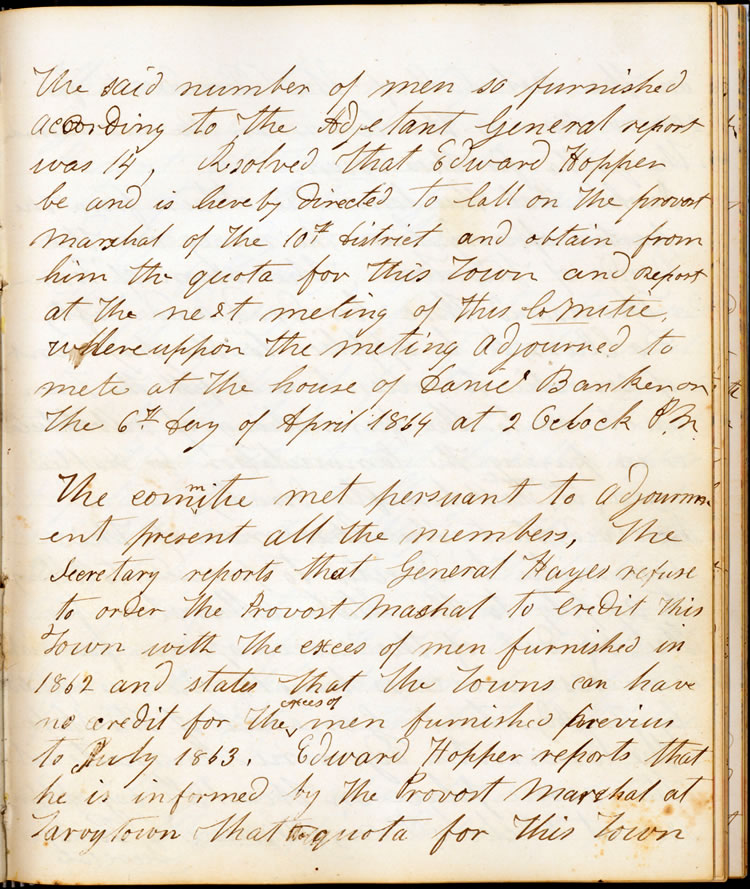 The said number of men so furnished
according to the Adjetant General report
was 14, Resolved that Edward Hopper
be and is hereby directed to Call on the provost
Marshal of the 10th district and obtain from
him the quota for this Town and report
at the next meting of this Comitie,
whereuppon the meting adjourned to
mete at the house of Daniel Banker on
the 6th day of April 1864 at 2 Oclock P.M.
The committie met persuant to adjournm-
ent present all the members, The
Secretary reports that General Hayes refuse
to order the Provost Mashal to Credit this
Town with the exces of men furnished in
1862 and states that the Towns can have
no credit for the exces of men furnished previus
to July 1863. Edward Hopper reports that
he is informed by the Provost Marshal at
Tarrytown that the quota for this Town